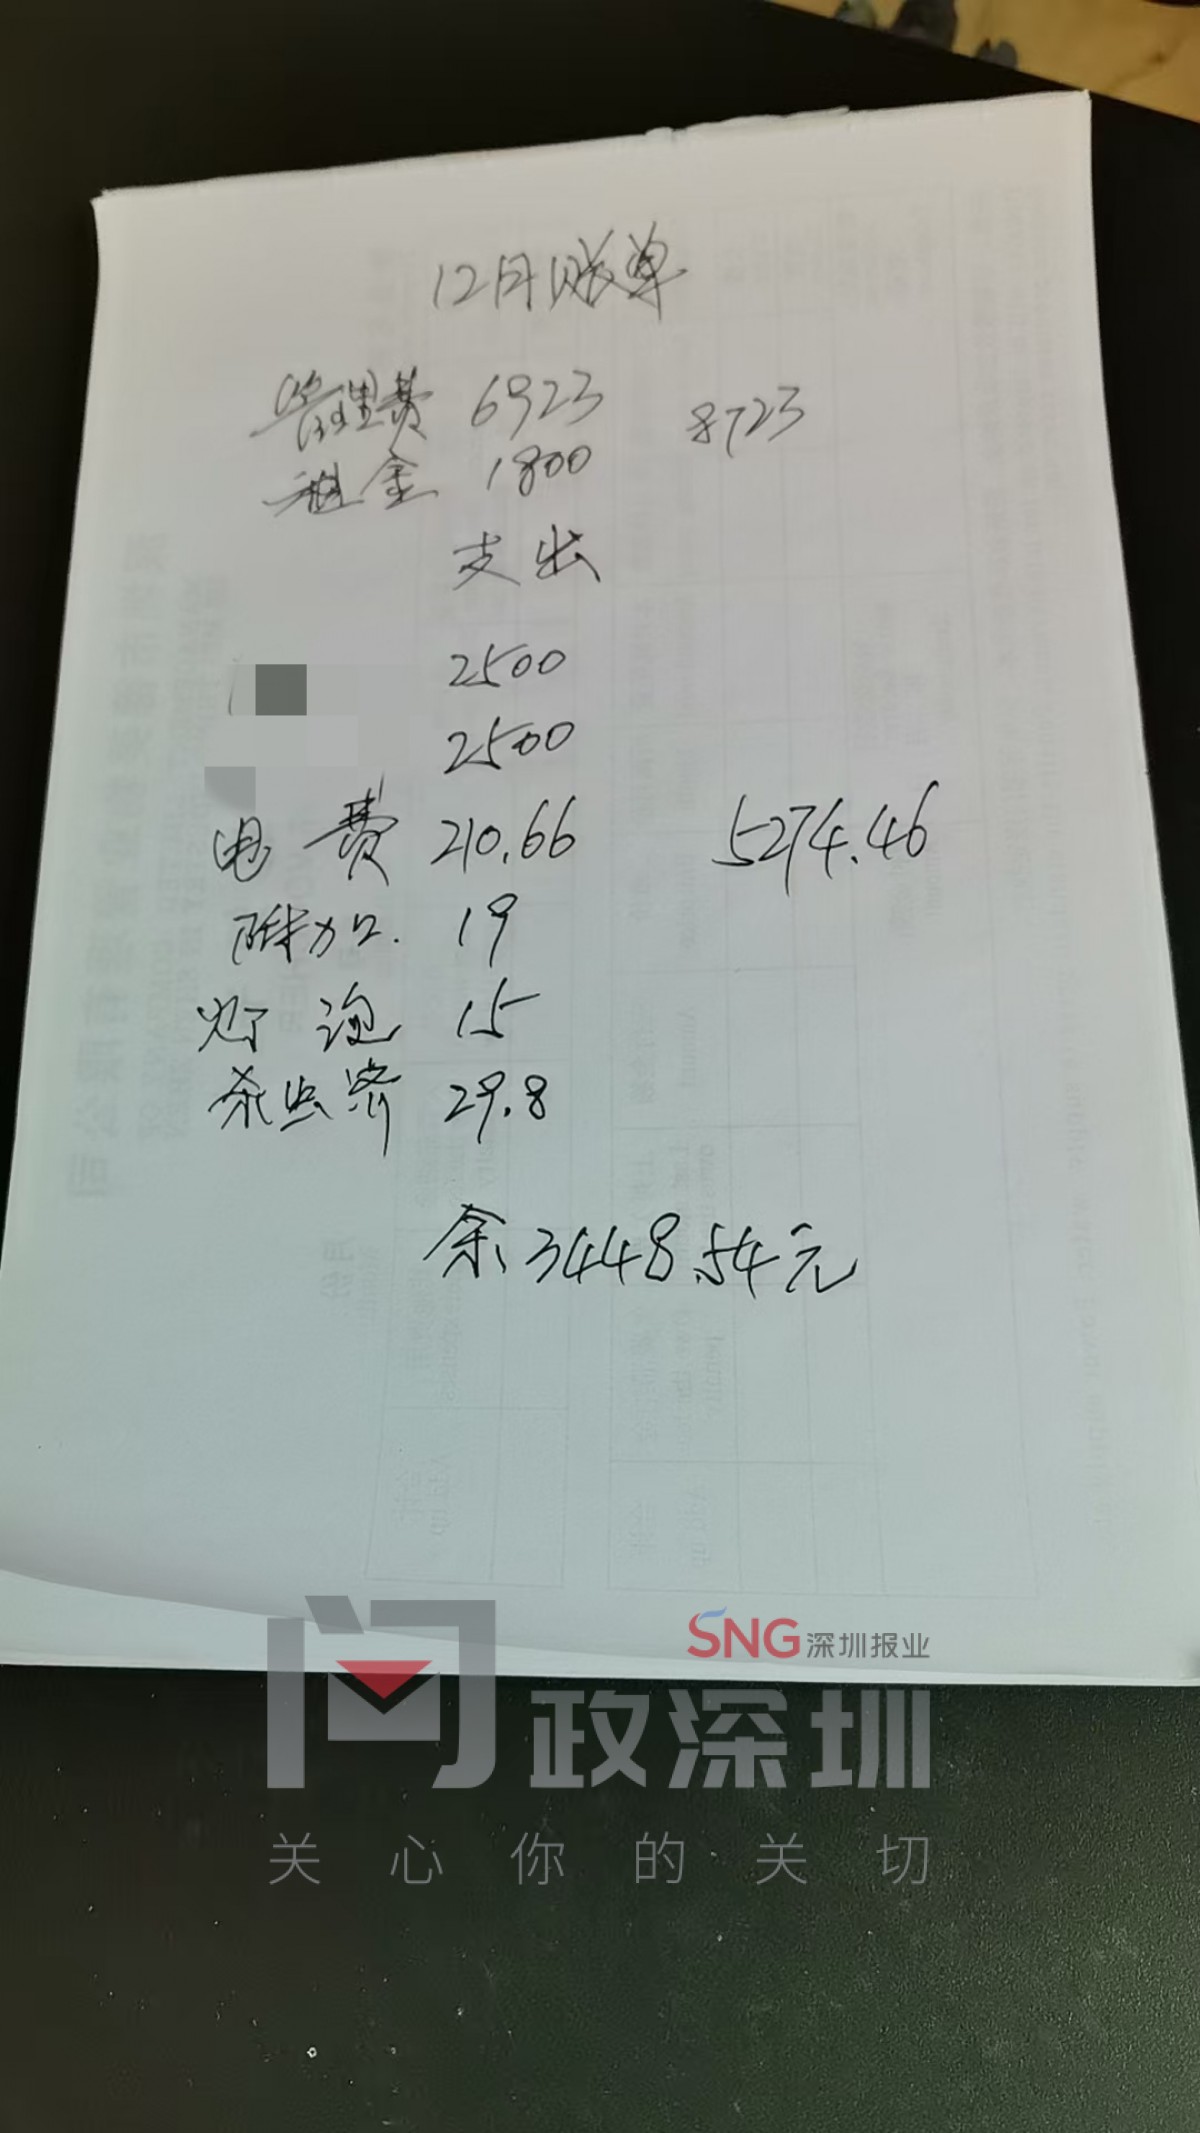 12月账单
管理费 6923 8723
租金 1800
支出
2500
2500
电费 210.66 5274.46
附加. 19
灯泡 15
杀虫剂 29.8
余 3448.54元
SNG深圳报业
问政深圳
关心你的关切